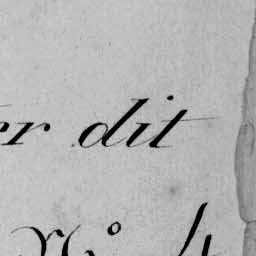 er dit
No 4